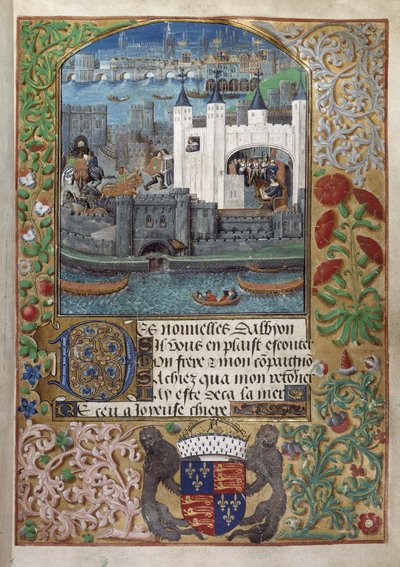 Des nouuelles Dalbyon
Sil vous en plaist escouter
Mon frere & mon cõpaignõ
Sachiez qua mon retorner
Jay este deca la mer
Receu a Joyeuse chiere